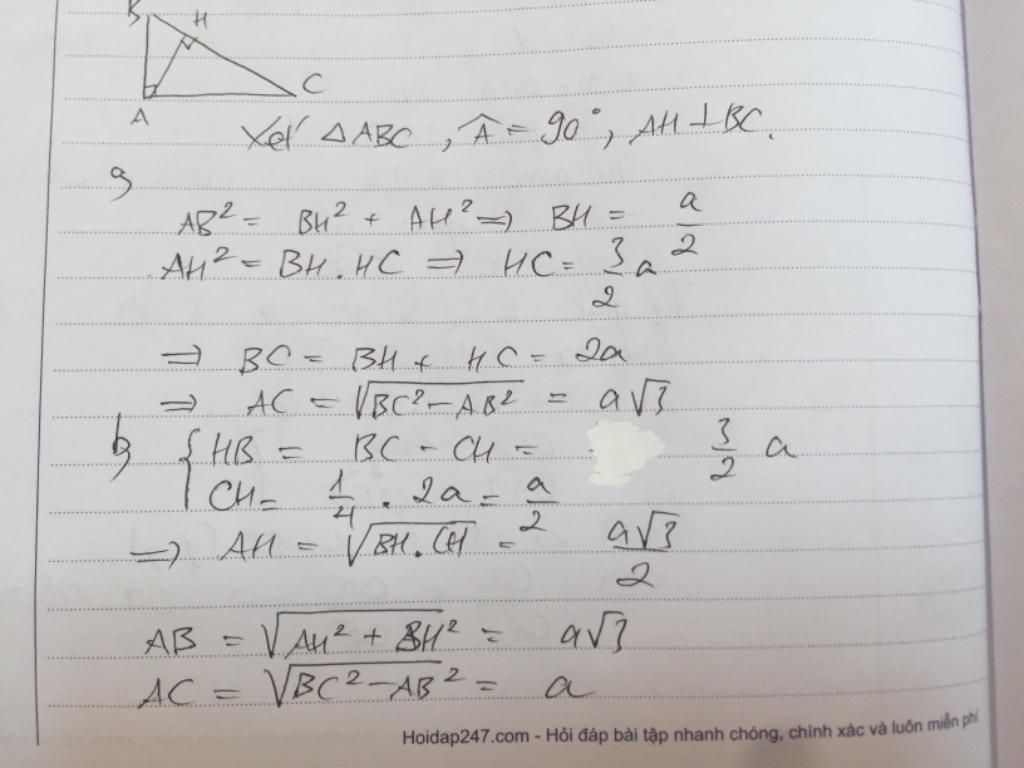 B H
A C
Xét △ABC, Â = 90°, AH ⊥ BC.
a,
AB² = BH² + AH² => BH = a/2
AH² = BH.HC => HC = 3/2 a
=> BC = BH + HC = 2a
=> AC = √(BC² - AB²) = a√3
b, { HB = BC - CH = 3/2 a
CH = 1/4 . 2a = a/2
=> AH = √(BH.CH) = a√3/2
AB = √(AH² + BH²) = a√3
AC = √(BC² - AB²) = a
Hoidap247.com - Hỏi đáp bài tập nhanh chóng, chính xác và luôn miễn phí